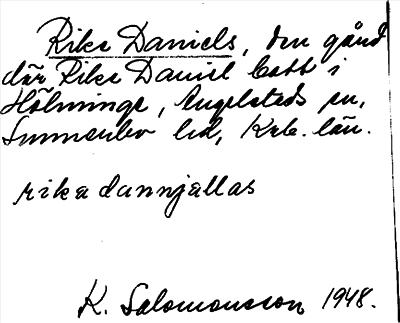 Rike Daniels, den gård
där Rike Daniel bott i
Hölminge, Angelstads sn,
Sunnerbo hd, Krb. län.
rika dannjällas
K. Salomonsson 1948.